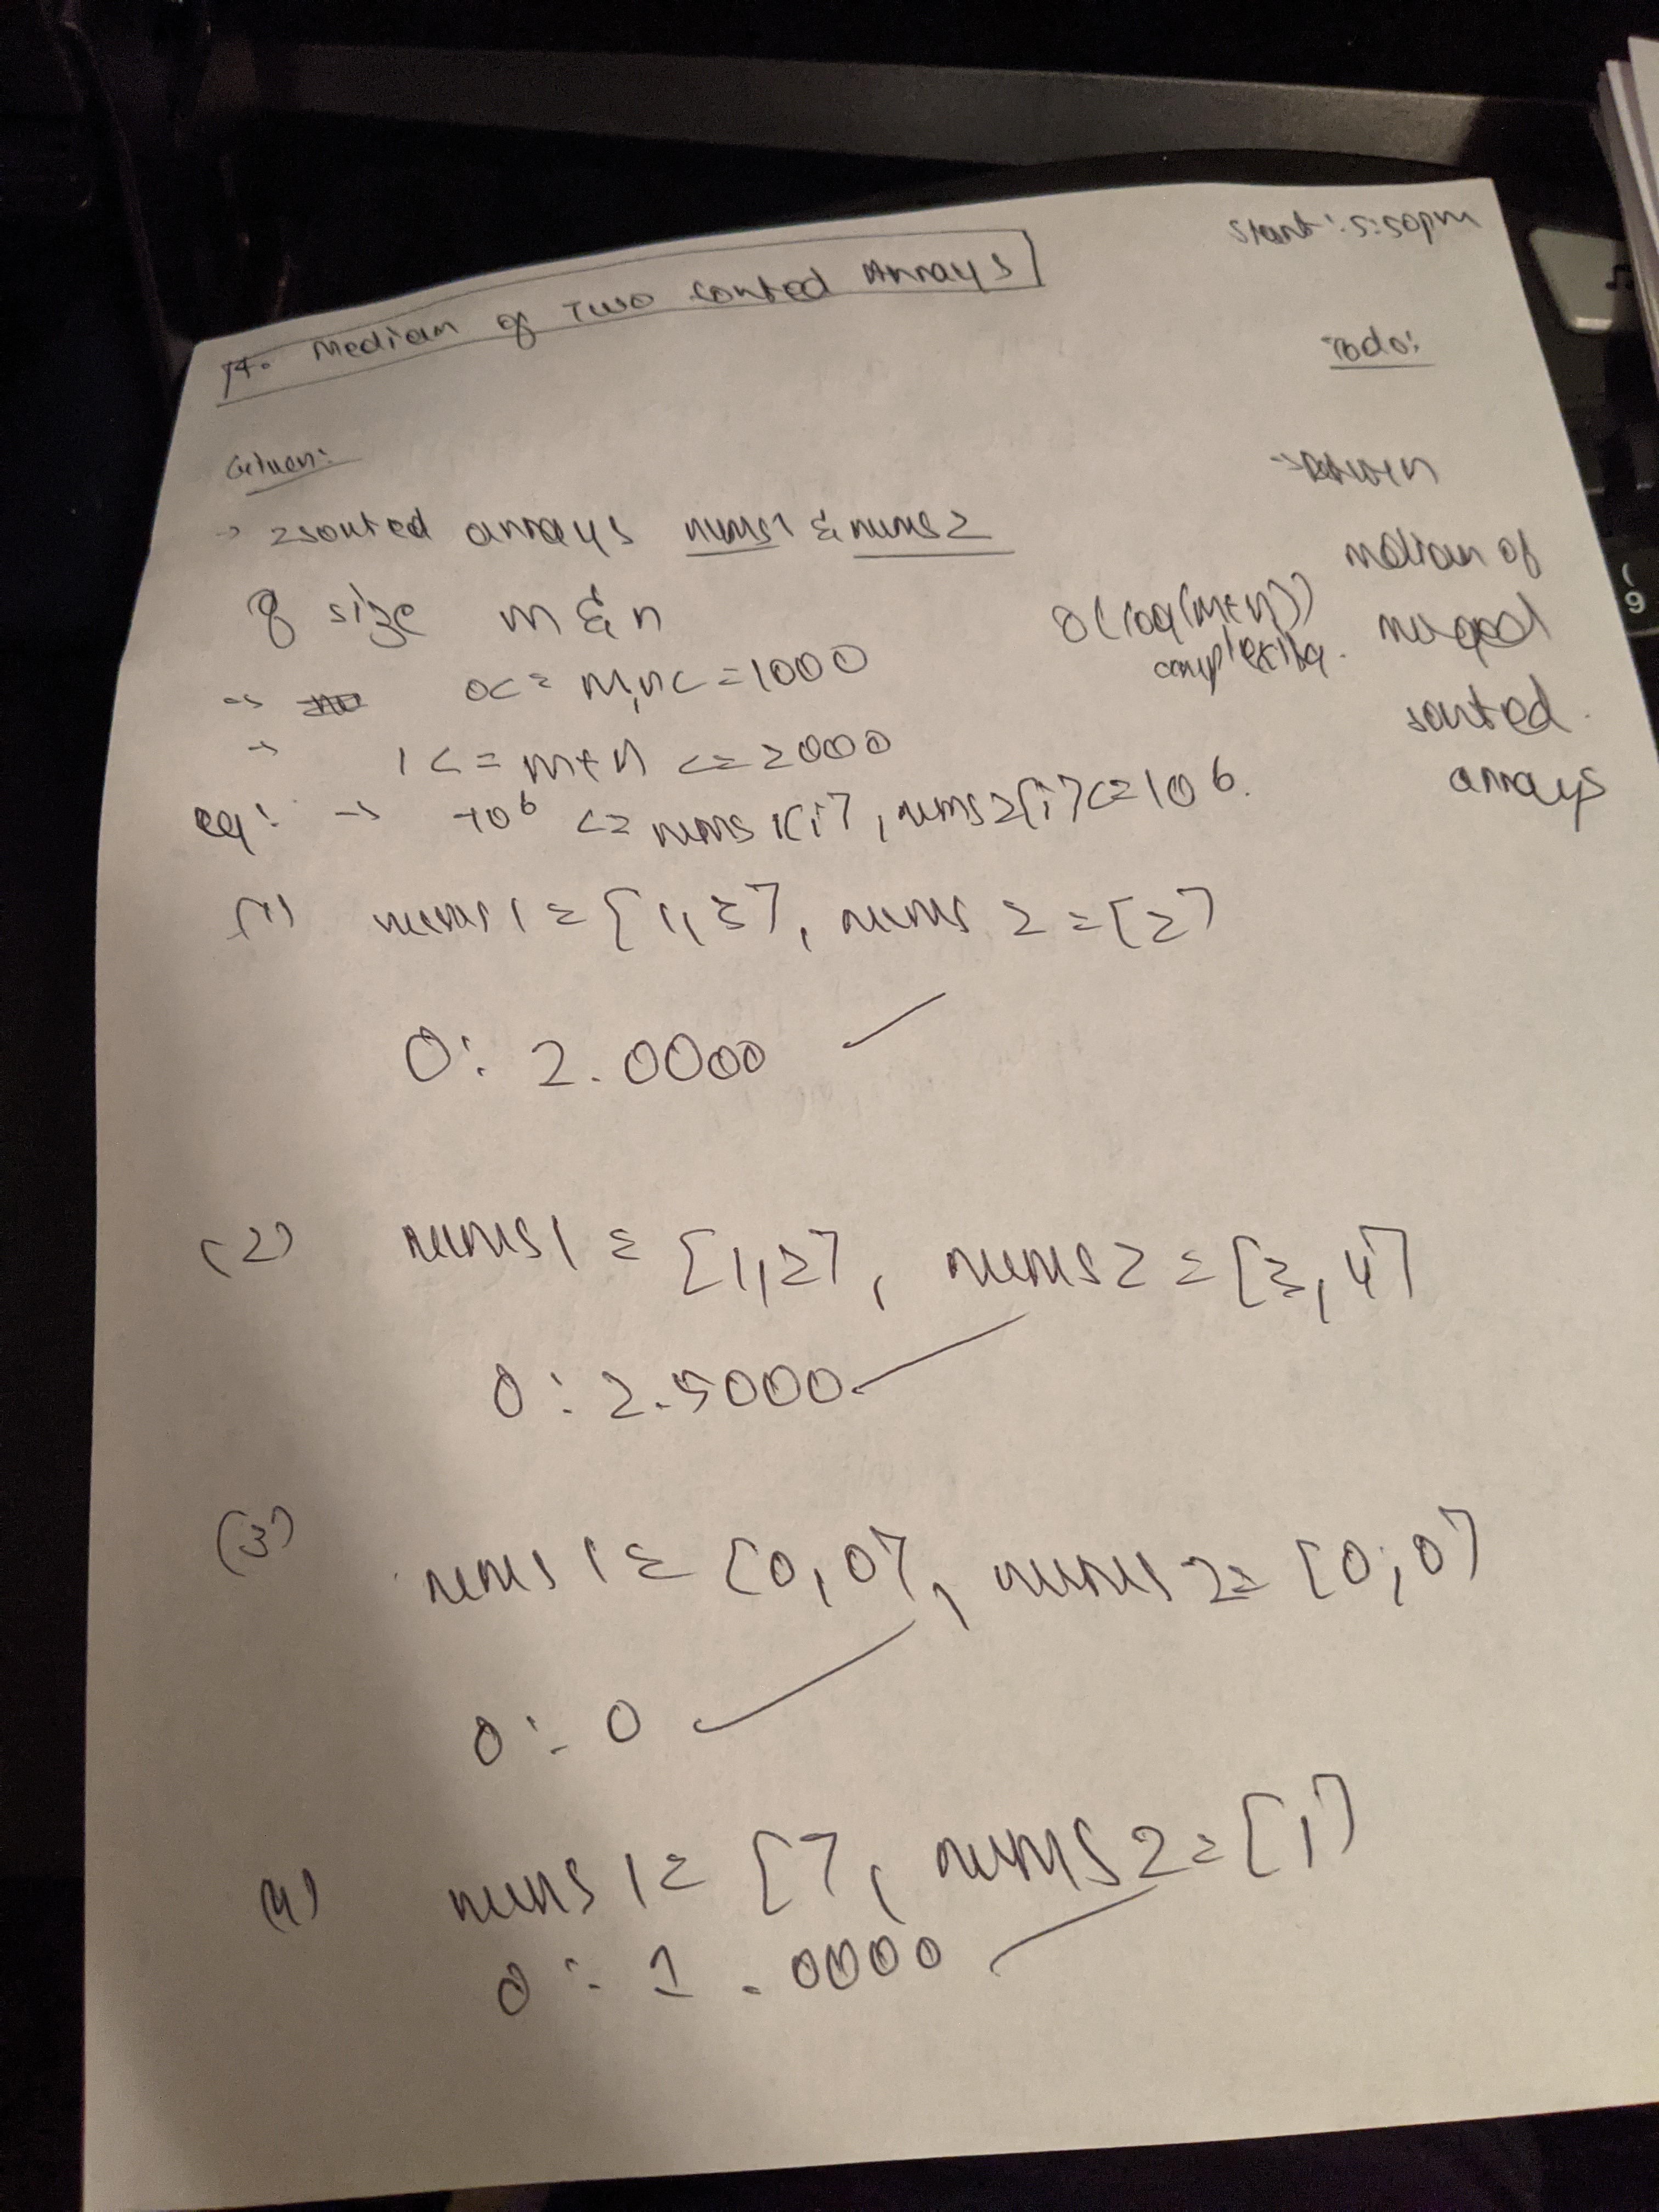 Start: 5:50pm
14. Median of Two Sorted Arrays
Todo:
Given:
→ 2 sorted arrays nums1 & nums2
of size m & n
→ 0<= m,n <=1000
→ 1<= m+n <=2000
eg: → -10^6 <= nums1[i], nums2[i] <=10^6.
→ Return
median of
merged
sorted
arrays
O(log(m+n))
complexity.
(1) nums1 = [1,3], nums2 = [2]
O: 2.0000
(2) nums1 = [1,2], nums2 = [3,4]
O: 2.5000
(3) nums1 = [0,0], nums2 = [0,0]
O: 0
(4) nums1 = [], nums2 = [1]
O: 1.0000
9